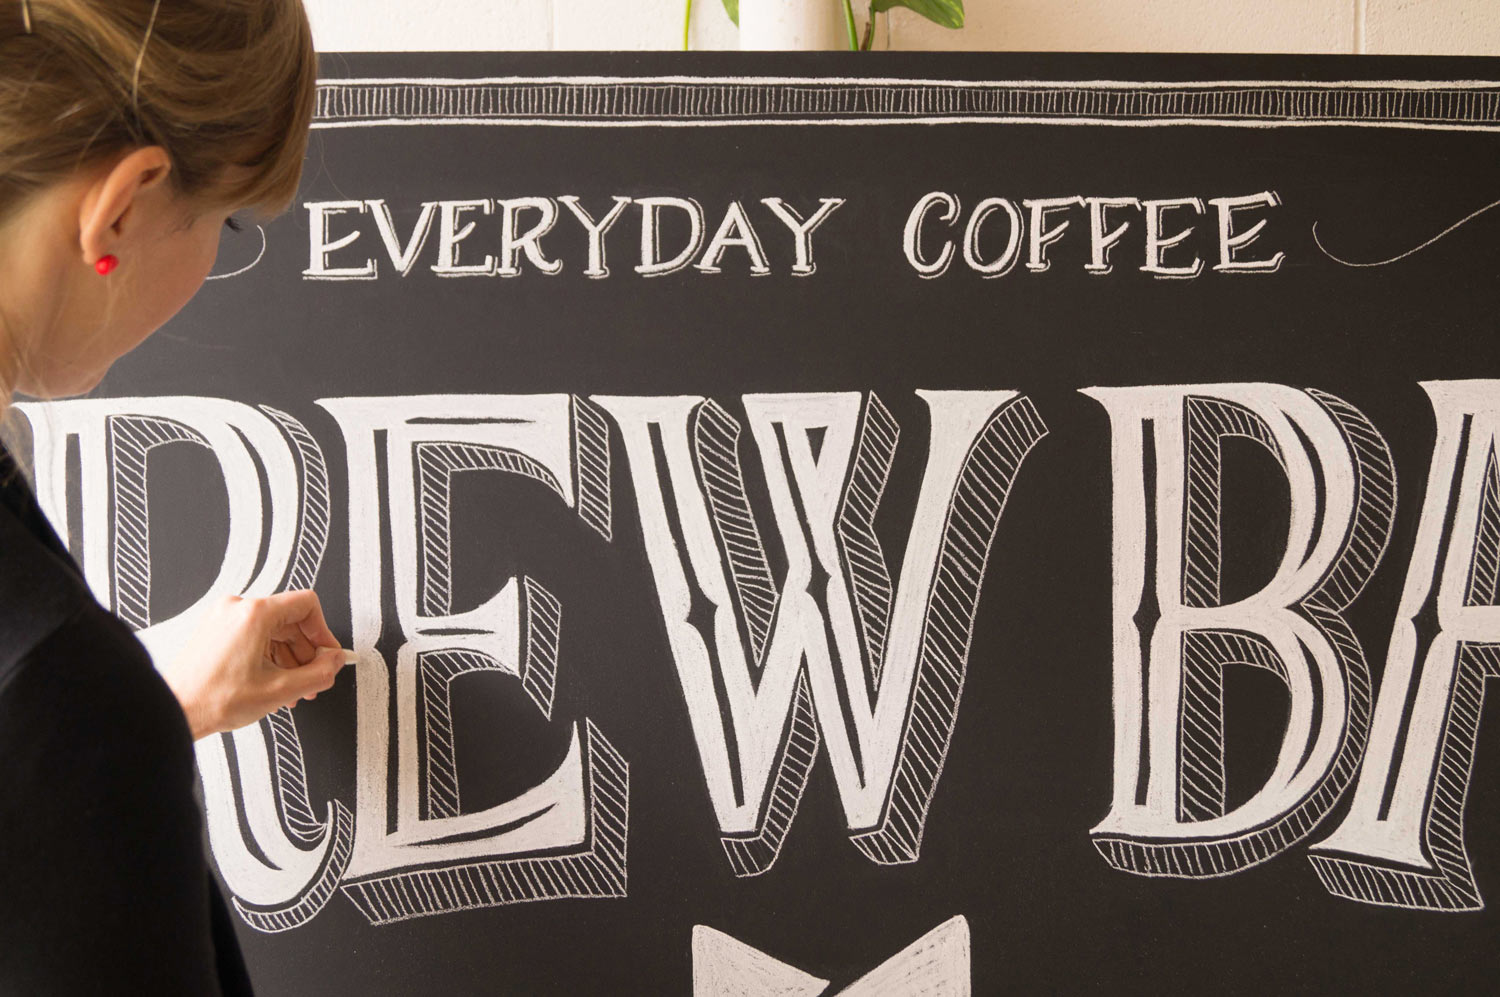 EVERYDAY COFFEE
REW BA